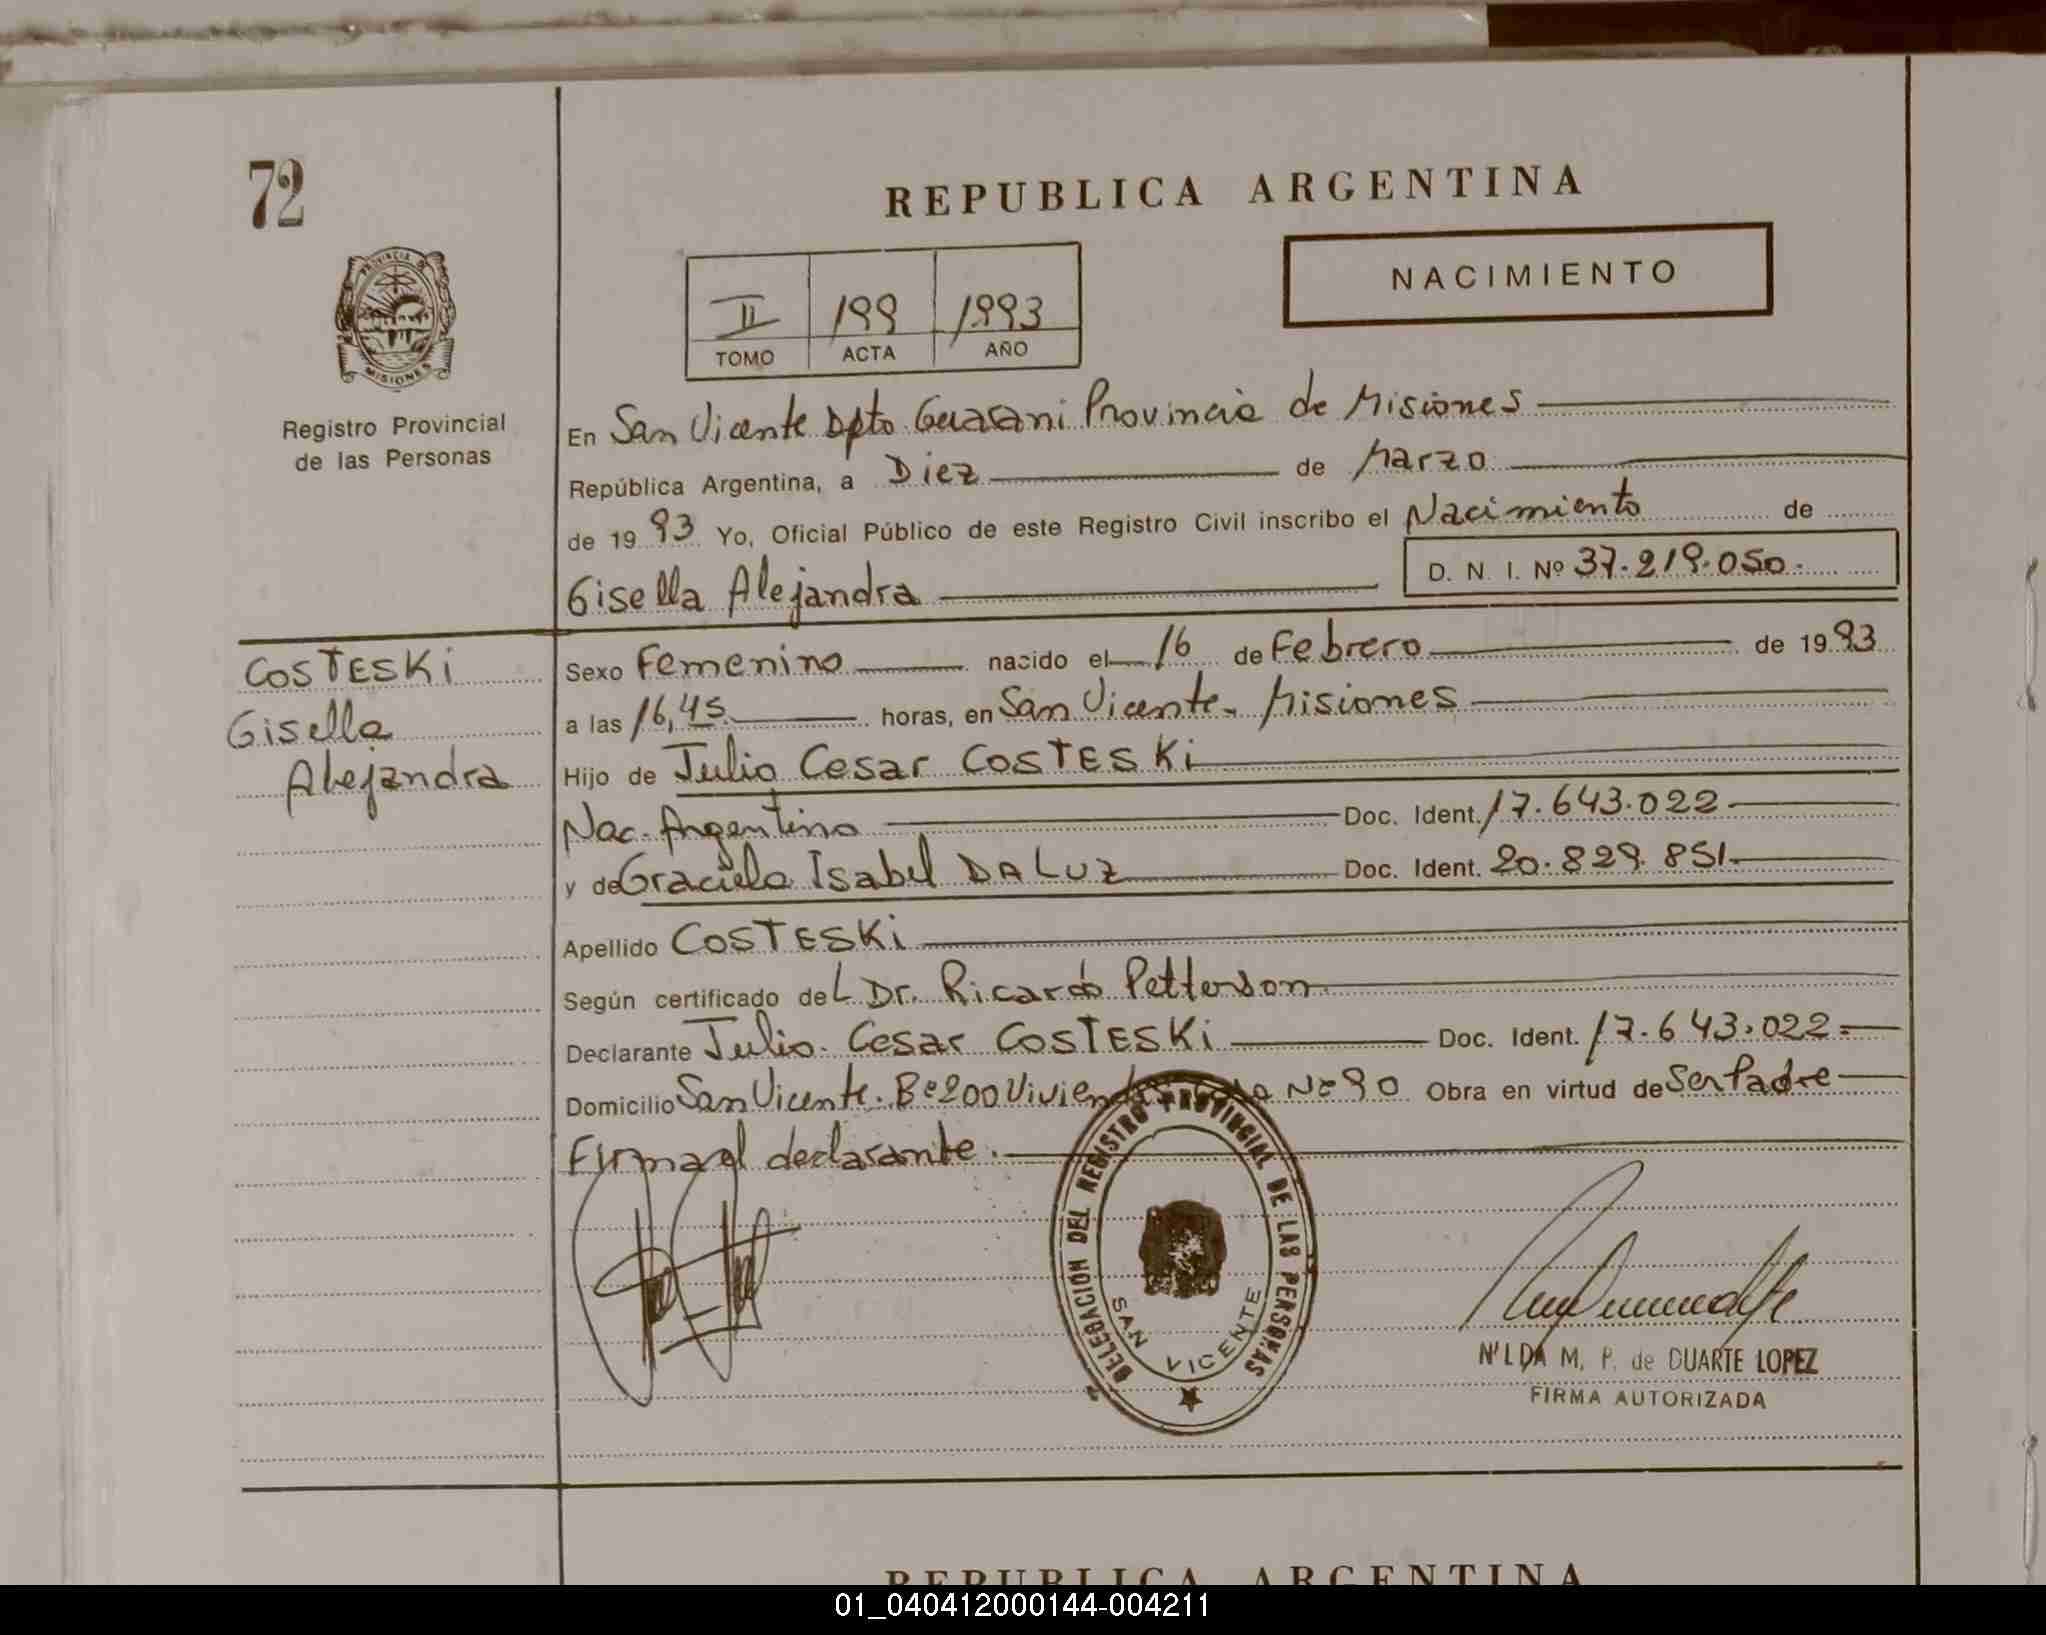 72
REPUBLICA ARGENTINA
NACIMIENTO
II 199 1993
TOMO ACTA AÑO
PROVINCIA DE
MISIONES
Registro Provincial
de las Personas
En San Vicente Dpto Guarani Provincia de Misiones
República Argentina, a Diez de Marzo
de 1993 Yo, Oficial Público de este Registro Civil inscribo el Nacimiento de
Gisella Alejandra D. N. I. Nº 37.219.050.
COSTESKi
Gisella
Alejandra
Sexo Femenino nacido el 16 de Febrero de 1993
a las 16,45 horas, en San Vicente. Misiones
Hijo de Julio Cesar COSTESKi
Nac. Argentino Doc. Ident. 17.643.022
y de Graciela Isabel DA LUZ Doc. Ident. 20.829.851.
Apellido COSTESKi
Según certificado deL Dr. Ricardo Petterson
Declarante Julio Cesar COSTESKi Doc. Ident. 17.643.022
Domicilio San Vicente. Bº 200 Viviendas Nº 90 Obra en virtud de Ser Padre
Firma el declarante.
DELEGACION DEL REGISTRO PROVINCIAL DE LAS PERSONAS
SAN VICENTE
NILDA M. P. de DUARTE LOPEZ
FIRMA AUTORIZADA
REPUBLICA ARGENTINA
01_040412000144-004211